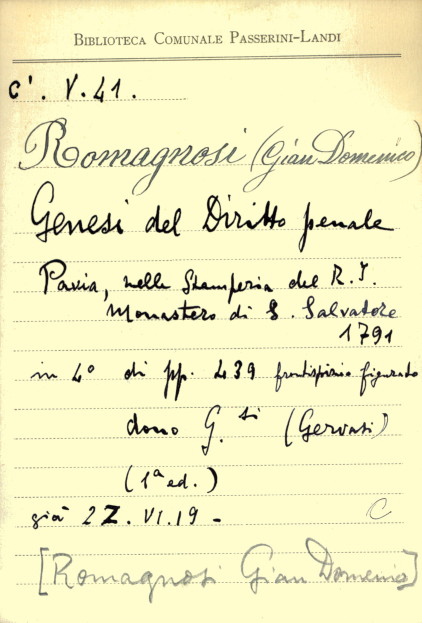 BIBLIOTECA COMUNALE PASSERINI-LANDI
C'. V. 41.
Romagnosi (Gian Domenico)
Genesi del Diritto penale
Pavia, nella Stamperia del R. I.
Monastero di S. Salvatore
1791
in 4° di pp. 439 frontispizio figurato
dono G.si (Gervasi)
(1a ed.)
già 2Z. VI. 19 -
C
[Romagnosi Gian Domenico]